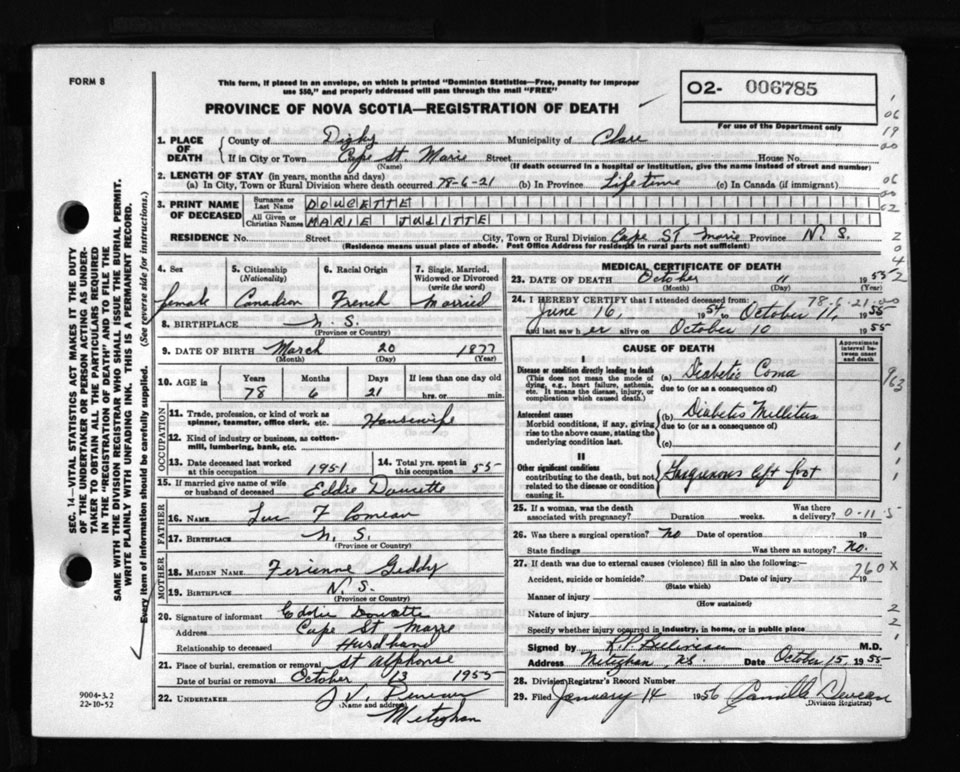 FORM 8
This form, if placed in an envelope, on which is printed "Dominion Statistics—Free, penalty for improper
use $50," and properly addressed will pass through the mail "FREE"
PROVINCE OF NOVA SCOTIA—REGISTRATION OF DEATH
O2- 006785
For use of the Department only
1. PLACE OF DEATH County of Digby Municipality of Clare
If in City or Town Cape St. Marie Street House No.
(Name) (If death occurred in a hospital or institution, give the name instead of street and number)
2. LENGTH OF STAY (in years, months and days)
(a) In City, Town or Rural Division where death occurred 78-6-21 (b) In Province Lifetime (c) In Canada (if immigrant)
3. PRINT NAME OF DECEASED Surname or Last Name DOUCETTE
All Given or Christian Names MARIE JULITTE
RESIDENCE No. Street City, Town or Rural Division Cape St Marie Province N. S.
(Residence means usual place of abode. Post Office Address for residents in rural parts not sufficient)
4. Sex female
5. Citizenship (Nationality) Canadian
6. Racial Origin French
7. Single, Married, Widowed or Divorced (write the word) Married
8. BIRTHPLACE N. S.
(Province or Country)
9. DATE OF BIRTH March 20 1877
(Month) (Day) (Year)
10. AGE in Years 78 Months 6 Days 21 If less than one day old hrs. or min.
OCCUPATION
11. Trade, profession, or kind of work as spinner, teamster, office clerk, etc. Housewife
12. Kind of industry or business, as cotton-mill, lumbering, bank, etc.
13. Date deceased last worked at this occupation 1951 14. Total yrs. spent in this occupation 55
15. If married give name of wife or husband of deceased Eddie Doucette
FATHER
16. NAME Luc F Comeau
17. BIRTHPLACE N. S.
(Province or Country)
MOTHER
18. MAIDEN NAME Geddy
19. BIRTHPLACE N. S.
(Province or Country)
20. Signature of informant Eddie Doucette
Address Cape St Marie
Relationship to deceased Husdband
21. Place of burial, cremation or removal St Alphonse
Date of burial or removal October 13 1955
22. UNDERTAKER J V.
(Name and address)
Meteghan
9004-3.2
22-10-52
MEDICAL CERTIFICATE OF DEATH
23. DATE OF DEATH October 11 1955
(Month) (Day) (Year)
78-6-21-00
24. I HEREBY CERTIFY that I attended deceased from:
June 16, 1954 to October 11, 1955
and last saw her alive on October 10 1955
CAUSE OF DEATH
Approximate interval between onset and death
I
Disease or condition directly leading to death (a) Diabetic Coma
(This does not mean the mode of dying, e.g., heart failure, asthenia, etc. It means the disease, injury, or complication which caused death.) due to (or as a consequence of)
Antecedent causes (b) Diabetis Mellitus
Morbid conditions, if any, giving rise to the above cause, stating the underlying condition last. due to (or as a consequence of)
(c)
II
Other significant conditions contributing to the death, but not related to the disease or condition causing it. left foot
25. If a woman, was the death associated with pregnancy? Duration weeks. Was there a delivery? 0-11-5
26. Was there a surgical operation? No Date of operation 19
State findings Was there an autopsy? No.
27. If death was due to external causes (violence) fill in also the following:—
Accident, suicide or homicide? Date of injury 19
260X
(State which)
Manner of injury
(How sustained)
Nature of injury
Specify whether injury occurred in industry, in home, or in public place
Signed by M.D.
Address Meteghan, NS. Date October 15, 1955
28. Division Registrar's Record Number
29. Filed January 14 1956 Camilla Deveau
(Division Registrar)
06
19
00
06
00
02
2
0
4
2
963
1
1
1
2
2
1
SEC. 14—VITAL STATISTICS ACT MAKES IT THE DUTY
OF THE UNDERTAKER OR PERSON ACTING AS UNDER-
TAKER TO OBTAIN ALL THE PARTICULARS REQUIRED
IN THE "REGISTRATION OF DEATH" AND TO FILE THE
SAME WITH THE DIVISION REGISTRAR WHO SHALL ISSUE THE BURIAL PERMIT.
WRITE PLAINLY WITH UNFADING INK. THIS IS A PERMANENT RECORD.
Every item of information should be carefully supplied. (See reverse side for instructions.)